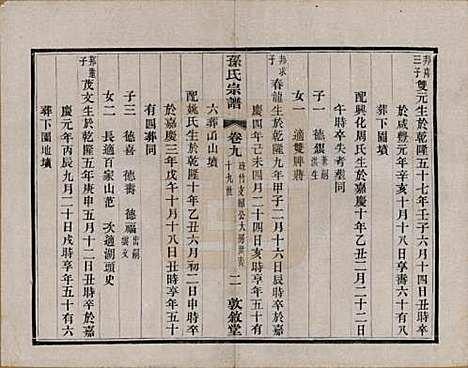 邦甫三子
雙元生於乾隆五十七年壬子六月十四日丑時卒
於咸豐元年辛亥十月十一日亥時享壽六十有八
配興化周氏生於嘉慶十年乙丑二月二十二日
午時卒失考葬同
子一 德銀
女一 適雙牌蔣
邦求子
春龍生於乾隆九年甲子二月十六日亥時卒於嘉
慶四年己未四月二十四日亥時享年五十有
六葬函山墳
孫氏宗譜 卷九 十九世 二 敦敘堂
配姚氏生於乾隆十年乙丑六月初二日申時卒
於嘉慶三年戊午十月十八日丑時享年五十
有四葬同
子三 德喜 德壽 德雲
女二 長適百家山范 次適湖頭史
茂文生於乾隆五年庚申五月十二日丑時卒於嘉
慶元年丙辰九月二十日戌時享年五十有六
葬下園地墳